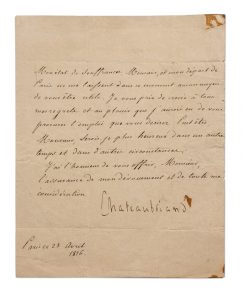 Mon état de souffrance, Monsieur, et mon départ de
Paris ne me laissent dans ce moment aucun moyen
de vous être utile. Je vous prie de croire à tous
mes regrets et au plaisir que j'aurois eu de vous
procurer l'emploi que vous desirez. Peut-être
Monsieur, serai-je plus heureux dans un autre
temps et dans d'autres circonstances.
J'ai l'honneur de vous offrir, Monsieur,
l'assurance de mon dévouement et de toute ma
considération
Chateaubriand
Paris ce 23 Avril
1816.